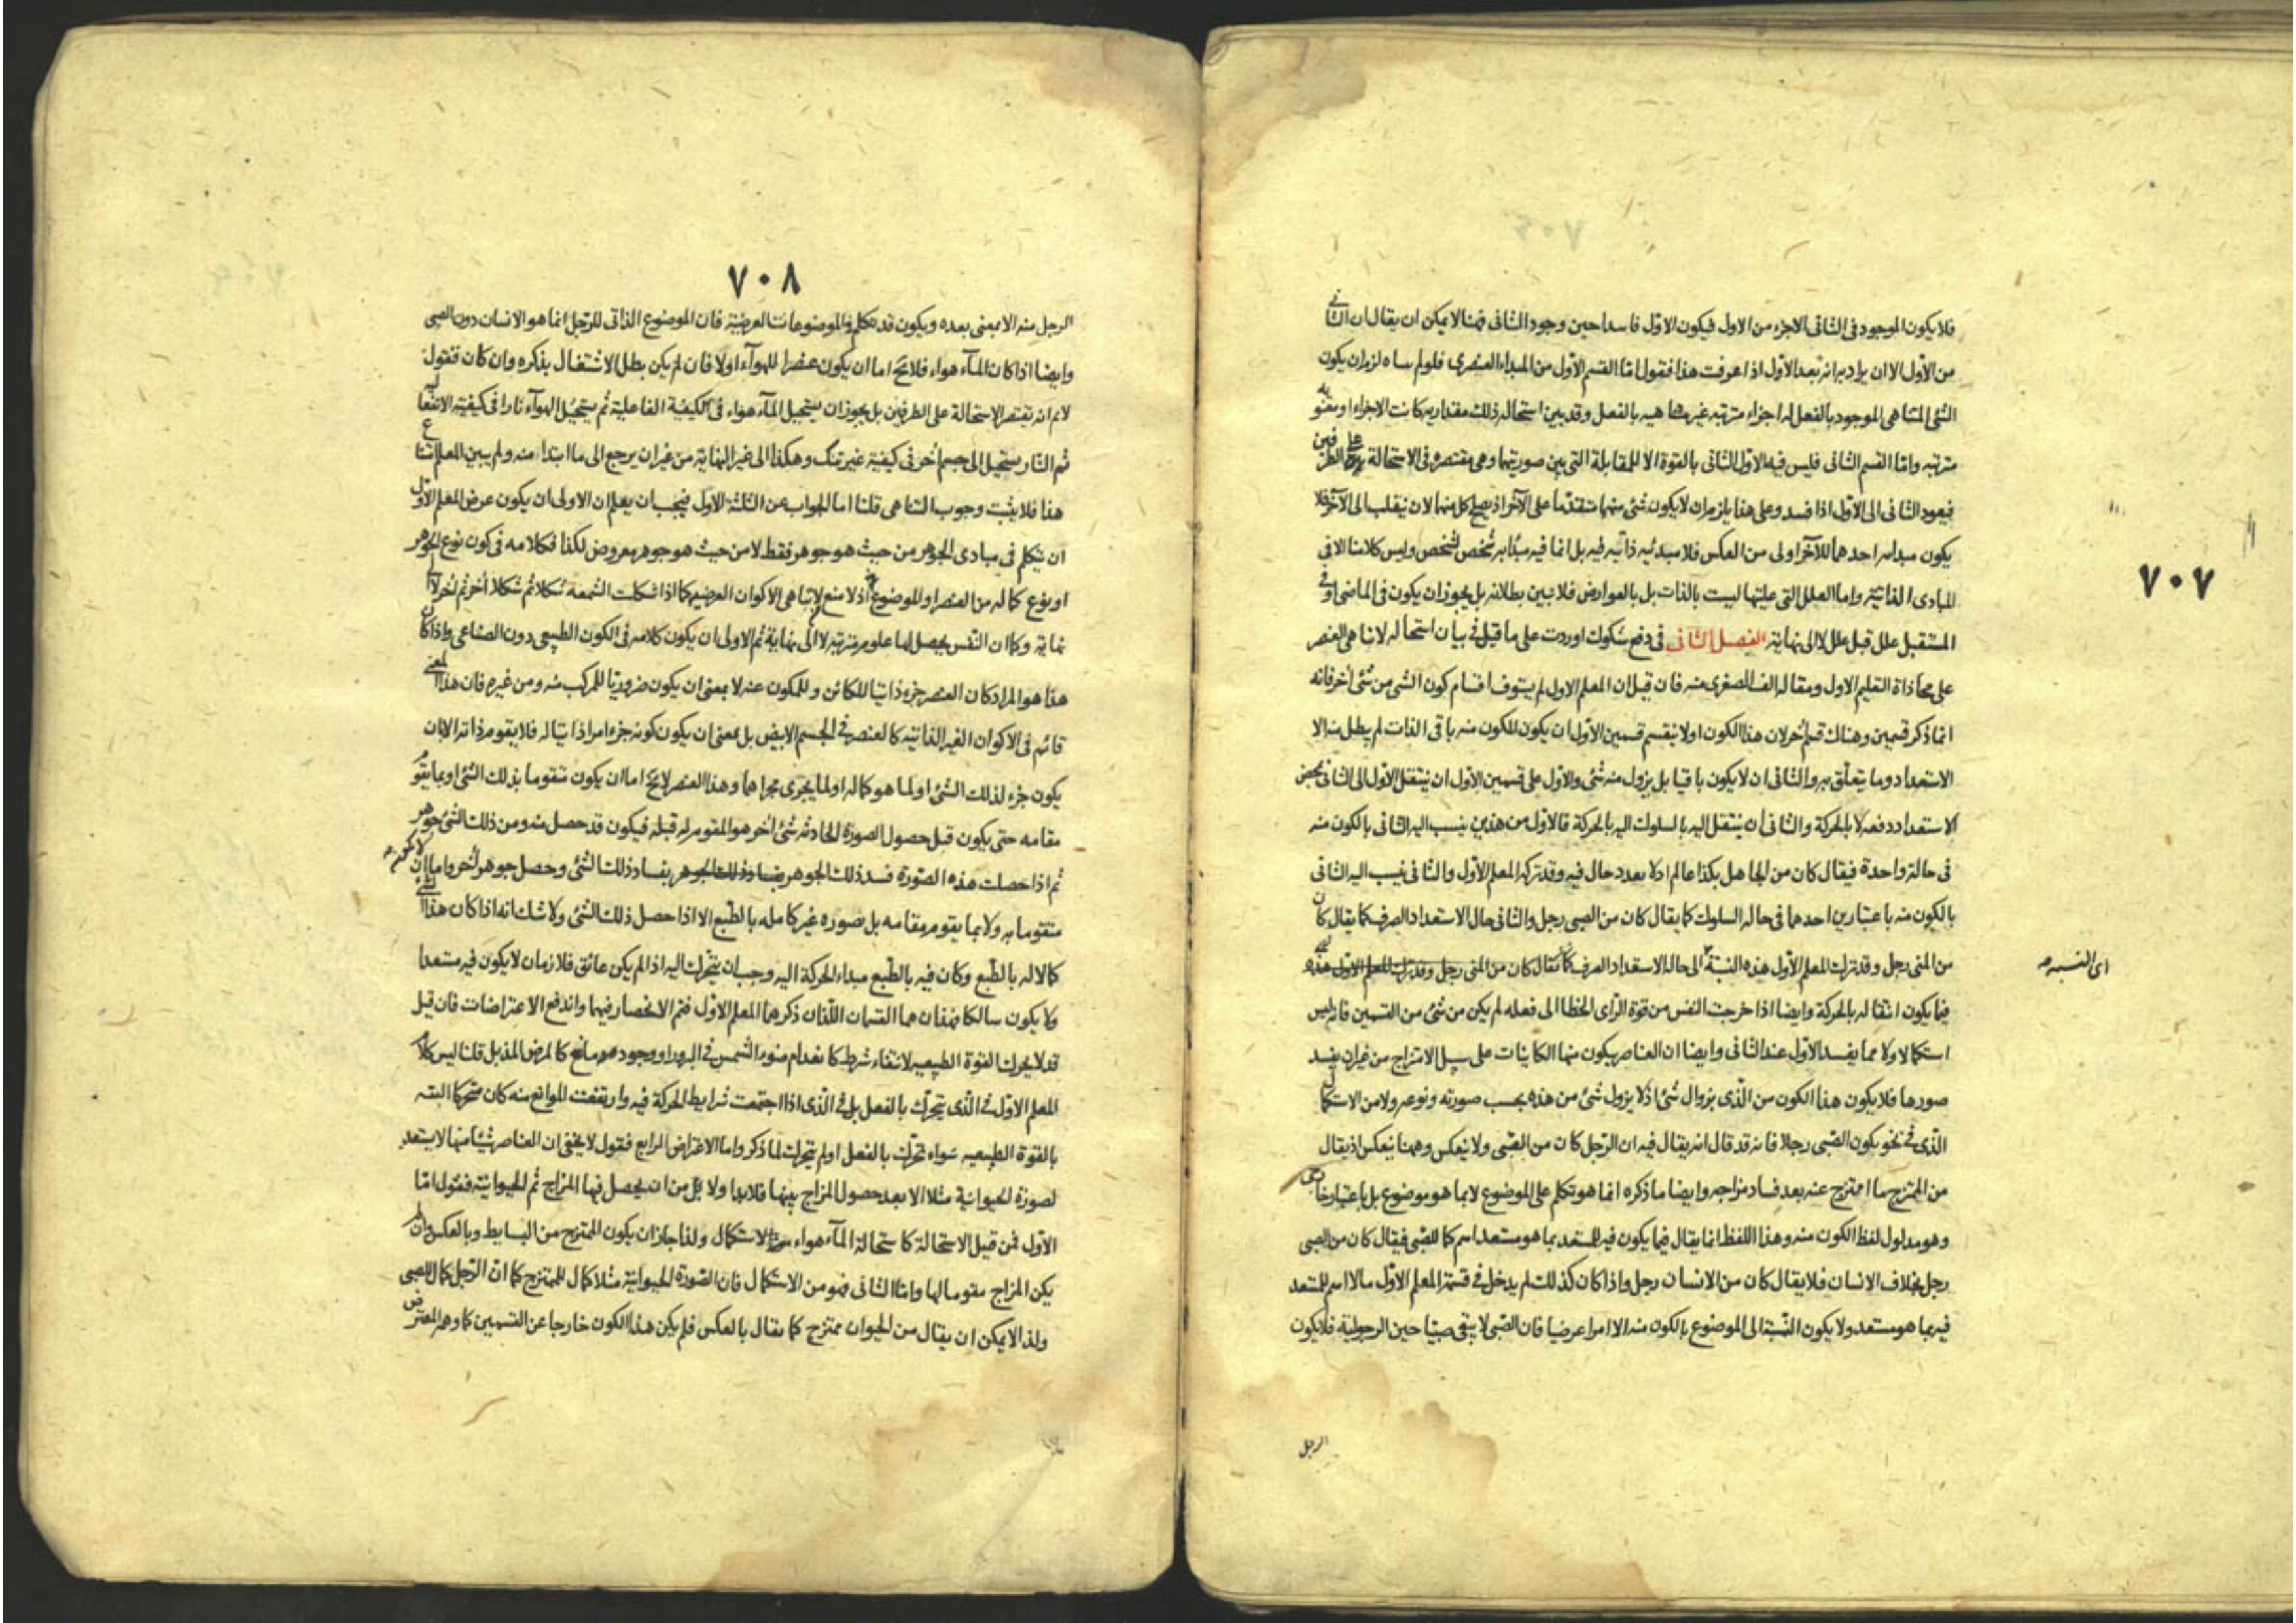 ٧٠٧
فلا يكون الموجود فى الثانى الاجزء من الاول فيكون الاوّل فاسدا حين وجود الثانى فهنا لا يمكن ان يقال ان الثانى
من الاوّل الا ان يراد به انه بعد الاوّل اذا عرفت هذا فنقول امّا القسم الاوّل من المبداء العنصرى فلو لم يتناه لزم ان يكون
الشئ المتناهى الموجود بالفعل له اجزاء مترتبه غير متناهيه بالفعل وقد بين استحاله ذلك مقداريه كانت الاجزاء او معنويه
مترتبه وامّا القسم الثانى فليس فيه الاول الثانى بالقوة الا للمقابلة التى بين صورتيها وهى مقتصره فى الاستحالة على الطرفين
فيعود الثانى الى الاوّل اذا فسد وعلى هذا يلزم ان لا يكون شئ منهما متقدّما على الآخر اذ يصلح كل منهما لان ينقلب الى الآخر فلا
يكون مبدأيه احدهما للآخر اولى من العكس فلا مبدئيه ذاتيه فيه بل انما فيه مبدأيه شخص لشخص وليس كلامنا الا فى
المبادى الذاتية واما العلل التى عليتها ليست بالذات بل بالعوارض فلا يبين بطلانه بل يجوز ان يكون فى الماضى او فى
المستقبل علل قبل علل لا الى نهاية الفصل الثانى فى دفع شكوك اوردت على ما قيل فى بيان استحاله لا تناهى العنصر
على محاذاة التعليم الاول ومقاله الف الصغرى منه فان قيل ان المعلم الاول لم يستوف اقسام كون الشئ من شئ اخر فانه
انما ذكر قسمين وهناك قسم اخر لان هذا الكون اولا ينقسم قسمين الاوّل ان يكون المكون منه باقى الذات لم يبطل منه الا
الاستعداد وما يتعلّق به والثانى ان لا يكون باقيا بل يزول منه شئ والاول على قسمين الاوّل ان ينتقل الاوّل الى الثانى بمحض
الاستعداد دفعه لا بالحركة والثانى ان ينتقل اليه بالسلوك اليه بالحركة فالاوّل من هذين ينسب اليه الثانى بالكون منه
فى حالة واحدة فيقال كان من الجاهل بكذا عالم اد لا بعدد حال فيه وقد تركه المعلم الاوّل والثانى ينسب اليه الثانى
بالكون منه باعتبارين احدهما فى حاله السلوك كما يقال كان من الصبى رجل والثانى حال الاستعداد الصرف كما يقال كان
من المنى رجل وقد ترك المعلم الاوّل هذه النسبة الى حاله الاستعداد الصرف كما يقال كان من المنى رجل وقد ترك المعلم الاوّل هذه
اى النسبه
فيما يكون انتقاله بالحركة وايضا اذا خرجت النفس من قوة الرّاى الخطا الى فعله لم يكن من شئ من القسمين فانه ليس
استكمالا ولا مما يفسد الاوّل عند الثانى وايضا ان العناصر يكون منها الكاينات على سبيل الامتزاج من غير ان يفسد
صورها فلا يكون هذا الكون من الّذى بزوال شئ اذ لا يزول شئ من هذه بحسب صورته ونوعه ولا من الاستكمال
الّذى فى نحو يكون الصّبى رجلا فانه قد قال انه يقال فيه ان الرّجل كان من الصّبى ولا ينعكس وههنا ينعكس اذ يقال
من الممتزج ما امتزج عنه بعد فساد مزاجه وايضا ما ذكره انما هو تكلم على الموضوع لا بما هو موضوع بل باعتبار خاص
وهو مدلول لفظ الكون منه وهذا اللفظ انما يقال فيما يكون فيه للمستعد بما هو مستعد اسم كما للصّبى فيقال كان من الصبى
رجل بخلاف الانسان فلا يقال كان من الانسان رجل واذا كان كذلك لم يدخل فى قسمة المعلم الاوّل مالا اسم للمستعد
فيه بما هو مستعد ولا يكون النّسبة الى الموضوع بالكون منه الا امرا عرضيا فان الصّبى لا يبقى صبيّا حين الرجولية فلا يكون
الرجل
٧٠٨
الرجل منه الا بمعنى بعده ويكون قد تكلم فى الموضوعات العرضيّة فان الموضوع الذاتى للرّجل انما هو الانسان دون الصبى
وايضا اذا كان المآء هواء فلا يخ اما ان يكون عنصرا للهوآء اولا فان لم يكن بطل الاشتغال بذكره وان كان فنقول
لا نم انه تقتصر الاستحالة على الطرفين بل يجوز ان يستحيل المآء هواء فى الكيفيّة الفاعلية ثم يستحيل الهوآء نارا فى كيفيته الانفعالية
ثم النار يستحيل الى جسم اخر فى كيفية غير تينك وهكذا الى غير النهاية من غير ان يرجع الى ما ابتدا منه ولم يبين المعلم امتناع
هذا فلا يثبت وجوب التناهى قلنا اما الجواب عن الثلثة الاول فيجب ان يعلم ان الاولى ان يكون عرض المعلم الاوّل
ان يتكلم فى مبادى الجوهر من حيث هو جوهر فقط لا من حيث هو جوهر معروض لكذا فكلامه فى كون نوع الجوهر
او نوع كماله من العنصر او الموضوع اذ لا منع لا تناهى الاكوان العرضيه كما اذا شكلت الشمعه شكلا ثم شكلا اخر ثم اخر لا الى
نهاية وكما ان النّفس يحصل لها علوم مترتبه لا الى نهاية ثم الاولى ان يكون كلامه فى الكون الطبيعى دون الصناعى واذا كان
هذا هو المراد كان العنصر جزء ذاتيا للكائن وللمكون عنه لا بمعنى ان يكون ضروريّا للمركب منه ومن غيره فان هذا المعنى
قائم فى الاكوان الغير الذاتية كالعنصر فى الجسم الابيض بل بمعنى ان يكون كونه جزء امرا ذاتيا له فلا يقوم ذاته الا بان
يكون جزء لذلك الشئ او لما هو كماله او لما يجرى مجراهما وهذا العنصر لا يخ اما ان يكون متقوما بذلك الشئ او بما يقوم
مقامه حتى يكون قبل حصول الصورة الحادثه شئ اخر هو المقوم له قبله فيكون قد حصل منه ومن ذلك الشئ جوهر
ثم اذا حصلت هذه الصّورة فسد ذلك الجوهر بفساد ذلك الجوهر بفساد ذلك الشئ وحصل جوهر اخر واما ان لا يكون
متقوما به ولا بما يقوم مقامه بل بصوره غير كامله بالطّبع الا اذا حصل ذلك الشئ ولا شك انه اذا كان هذا الشئ
كمالا له بالطّبع وكان فيه بالطّبع مبداء الحركة اليه وجب ان يتحرّك اليه اذا لم يكن عائق فلا زمان لا يكون فيه مستعدا
ولا يكون سالكا فهذان هما القسمان اللّذان ذكرهما المعلم الاوّل فتم الانحصار فيهما واندفع الاعتراضات فان قيل
قد لا يحرك القوّة الطبيعيه لانتفاء شرط كانعدام ضوء الشّمس فى البرد او وجود مانع كالمرض المذبل قلنا ليس كلام
المعلم الاوّل فى الّذى يتحرّك بالفعل بل فى الّذى اذا اجتمعت شرايط الحركة فيه وارتفعت الموانع منه كان متحركا البته
بالقوة الطبيعيه سواء تحرّك بالفعل او لم يتحرك لما ذكر واما الاعتراض الرابع فنقول لا يخفى ان العناصر شئيا منها لا يستعد
لصورة الحيوانية مثلا الا بعد حصول المزاج بينها فلابد اولا من ان يحصل فيها المزاج ثم الحيوانيّة فنقول امّا
الاوّل فمن قبيل الاستحالة كاستحالة المآء هواء لا الاستكمال ولذا جاز ان يكون الممتزج من البسايط وبالعكس وان لم
يكن المزاج مقوما لها وامّا الثانى فهو من الاستكمال فان الصّورة الحيوانيّة مثلا كمال للممتزج كما انّ الرّجل كمال للصبى
ولذا لا يمكن ان يقال من الحيوان ممتزج كما يقال بالعكس فلم يكن هذا الكون خارجا عن القسمين كما وهمه المعترض